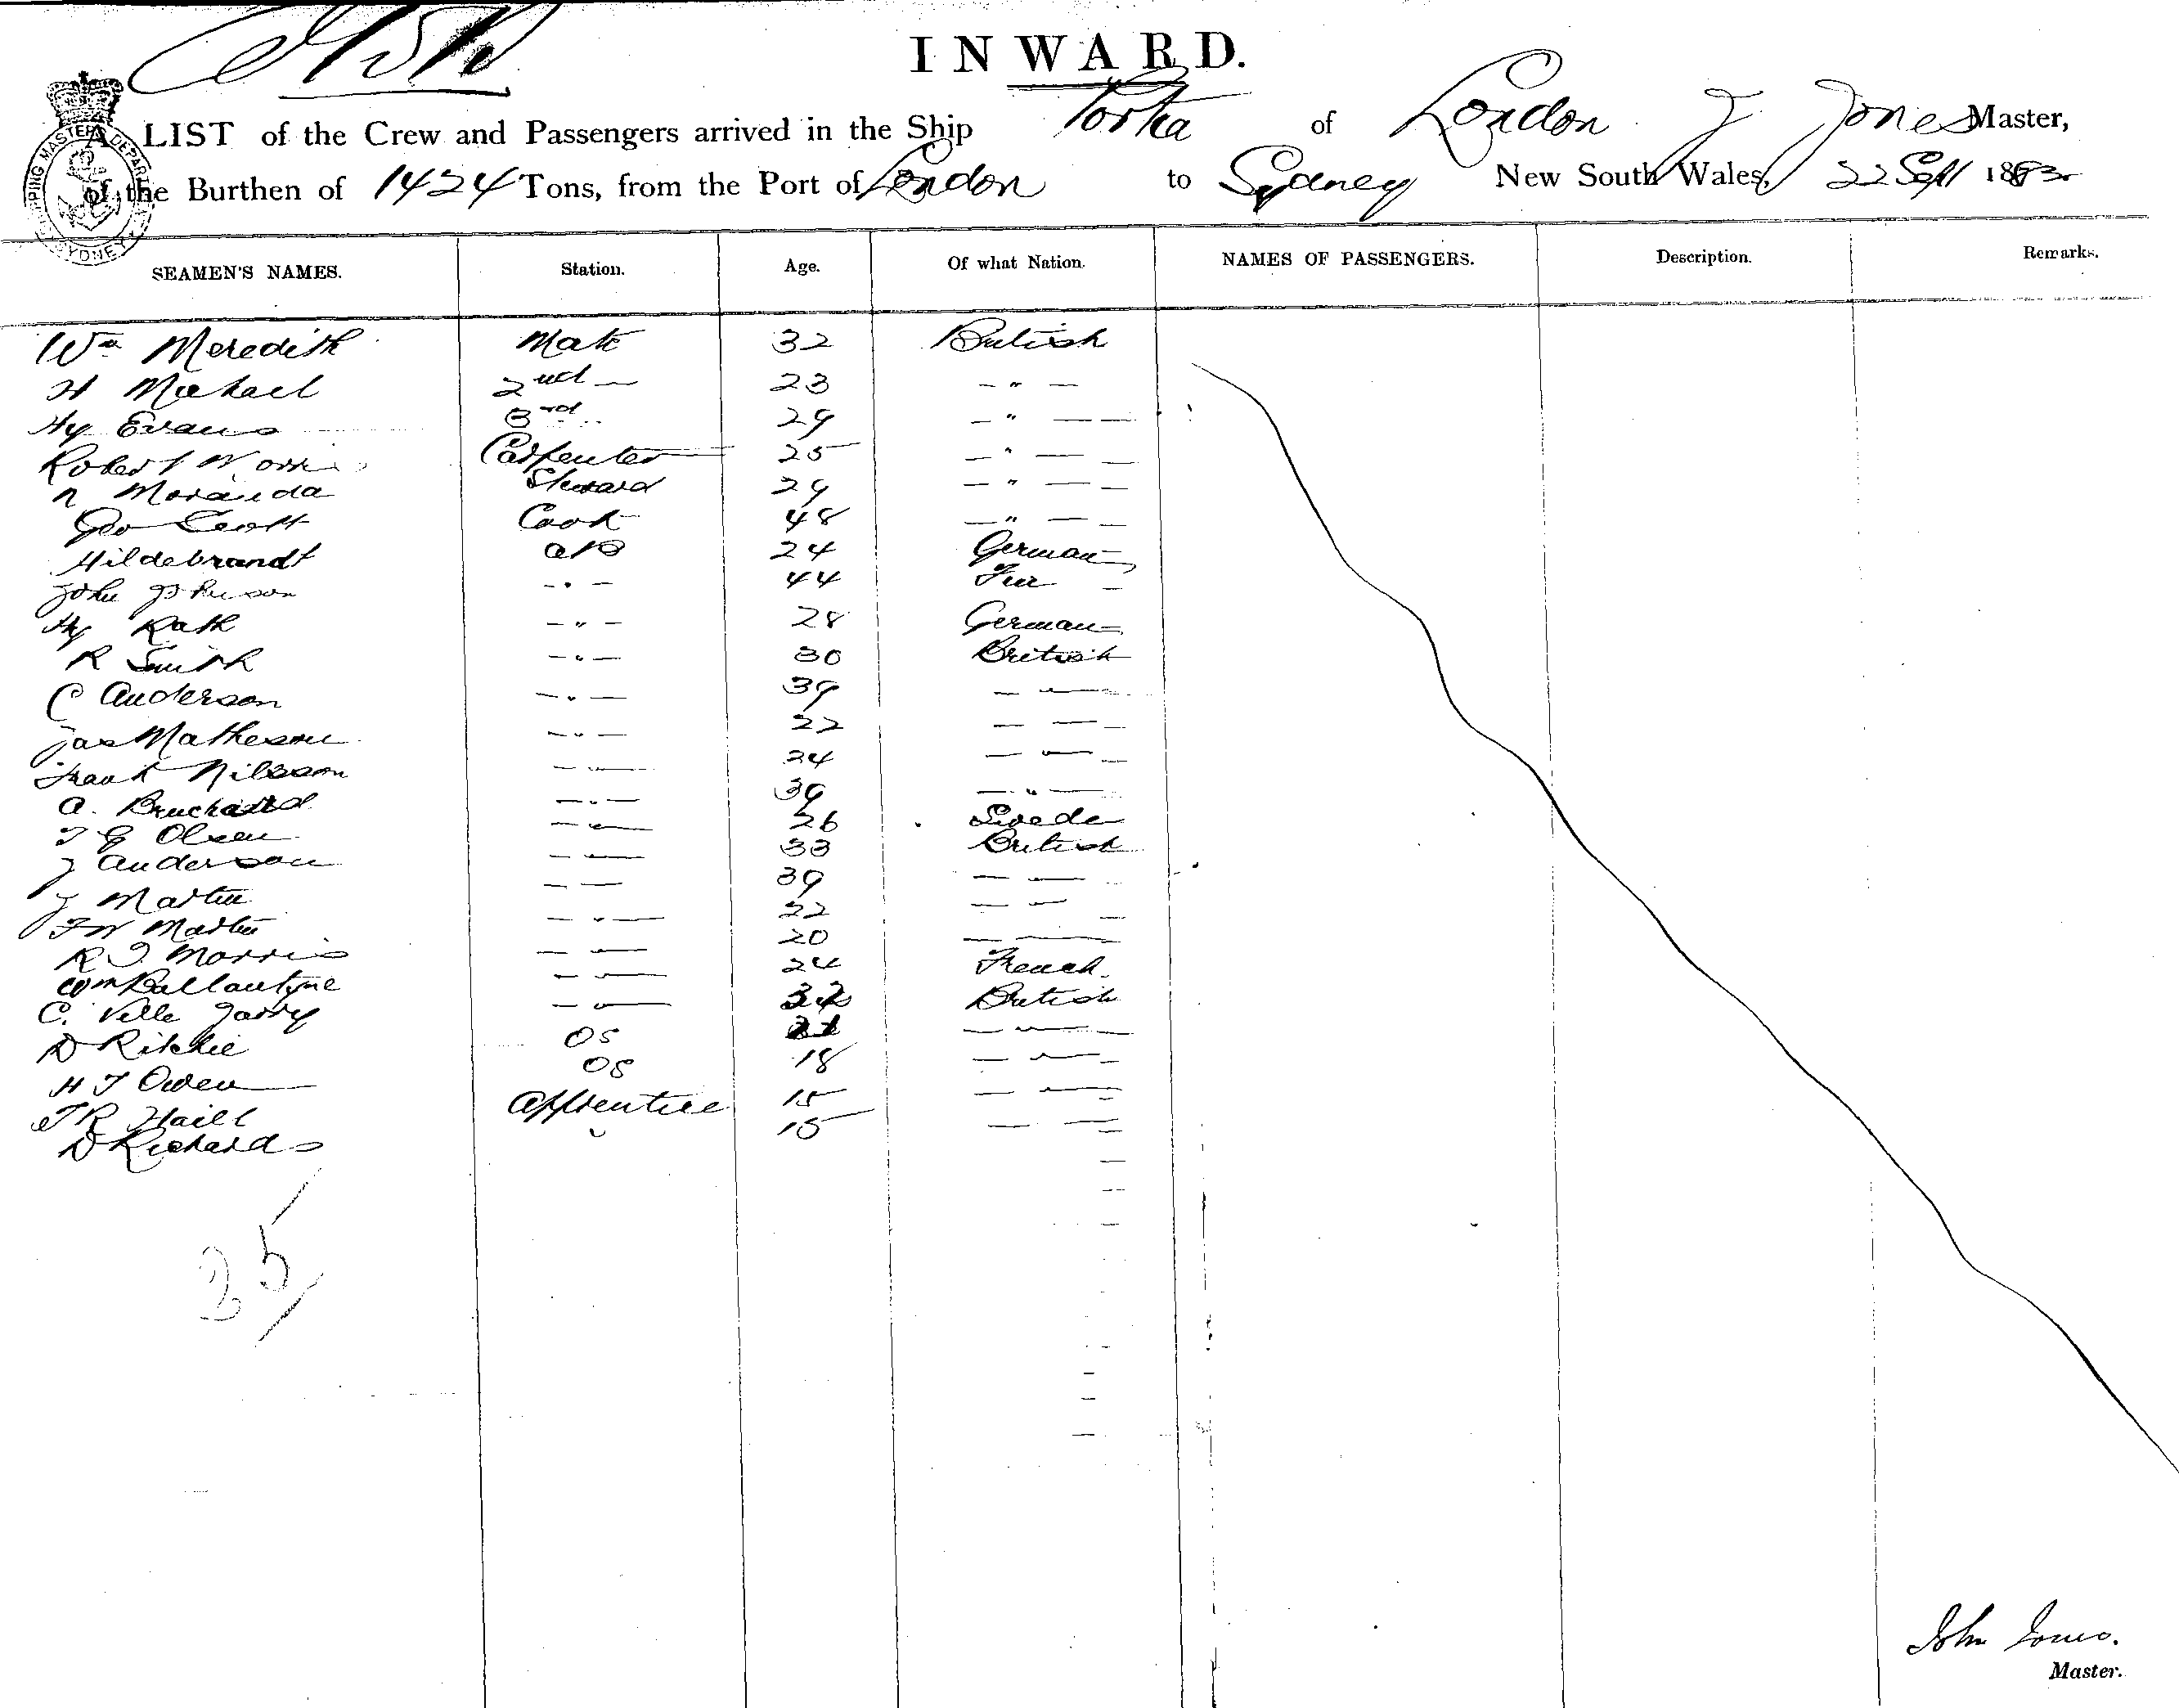 INWARD.
A LIST of the Crew and Passengers arrived in the Ship Portia of London J Jones Master,
of the Burthen of 1424 Tons, from the Port of London to Sydney New South Wales, 22 Sept 1883
SHIPPING MASTER'S DEPARTMENT SYDNEY
SEAMEN'S NAMES. Station. Age. Of what Nation. NAMES OF PASSENGERS. Description. Remarks.
Wm Meredith Mate 32 British
H Michael 2nd — 23 — " —
Hy Evans 3rd 29 — " —
Robert W Carpenter 25 — " —
N Steward 29 — " —
Geo Scott Cook 48 — " —
Hildebrandt AB 24 German
John Johnson — " — 44 Fin
Hy Rath — " — 28 German
R Smith — " — 30 British
C Anderson — " — 39 — —
Jas Matheson — " — 22 — —
Frank Nilsson — " — 24 — —
A. — " — 39 — " —
J G Olsen — " — 26 Swede
J Anderson — " — 33 British
J Martin — — 39 — —
F W Martin — " — 22 — —
R J Morris — " — 20 — —
Wm Ballantyne — " — 24 French
C. Velle — " — British
D Ritchie OS — —
H J Owen OS 18 — —
J R Apprentice 15 — —
D Richards " 15 — —
John Jones.
Master.